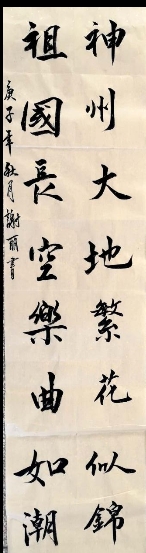 神州大地繁花似錦
祖國長空樂曲如潮
庚子年秋月謝丽書